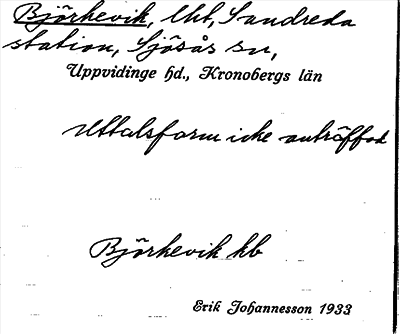 Björkevik, lht, Sandreda
station, Sjösås sn,
Uppvidinge hd., Kronobergs län
Uttalsform icke anträffad
Björkevik kb
Erik Johannesson 1933